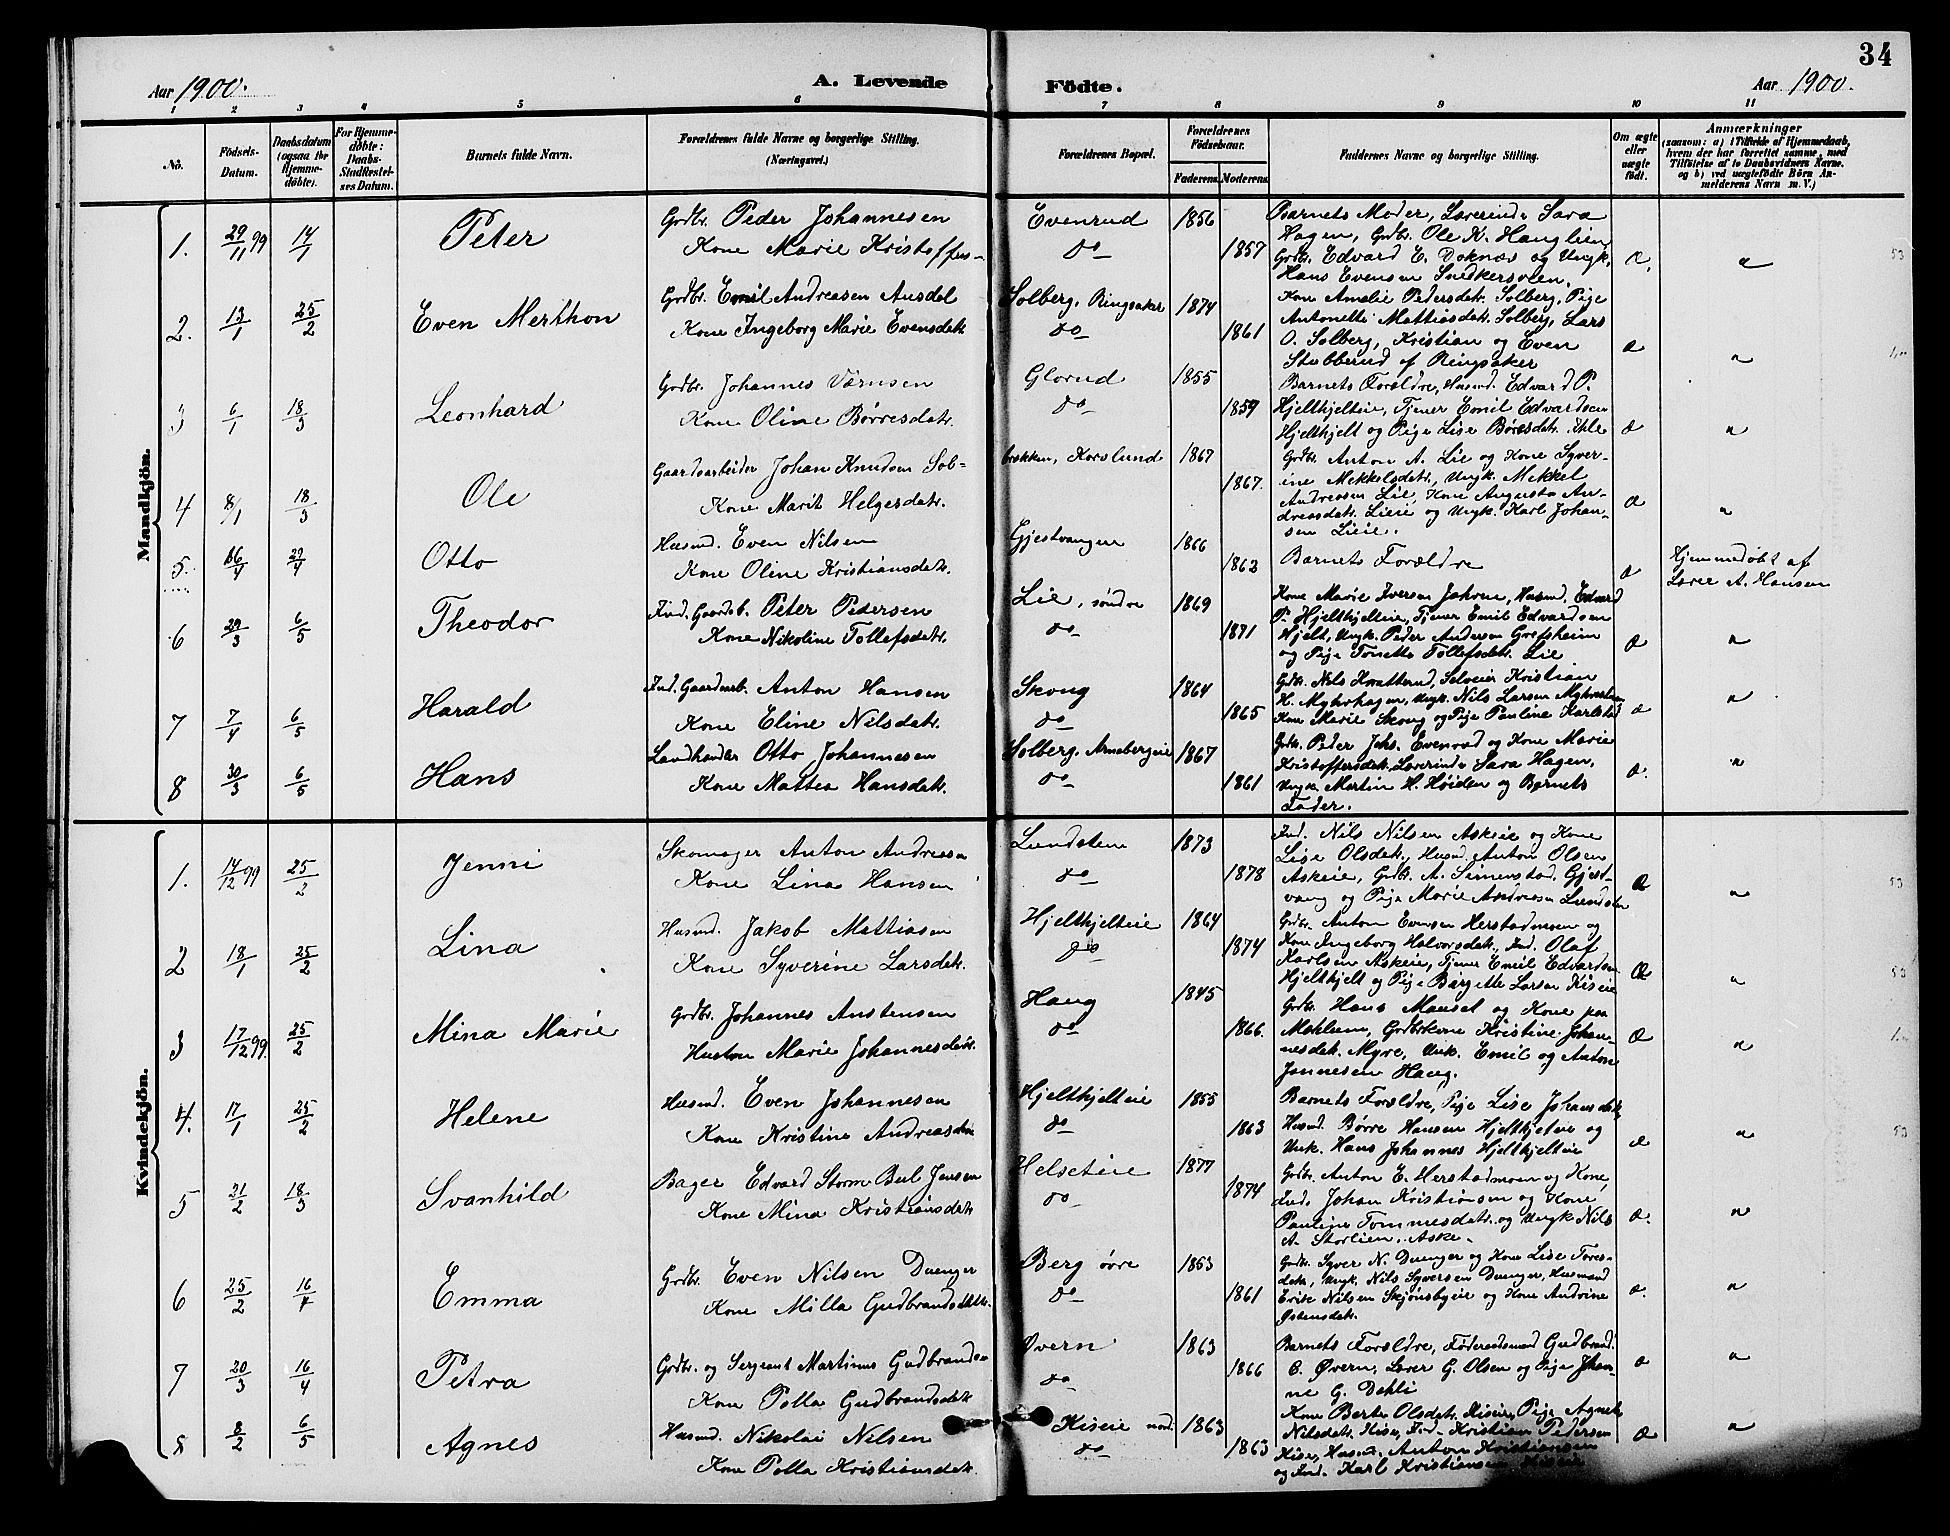 34
Aar 1900.
A. Levende
Födte.
Aar 1900.
1 2 3 4 5 6 7 8 9 10 11
No.
Födsels-
Datum.
Daabsdatum
(ogsaa for
Hjemme-
döbte).
For Hjemme-
döbte:
Daabs-
Stadfæstel-
ses Datum.
Barnets fulde Navn.
Forældrenes fulde Navne og borgerlige Stilling.
(Næringsvei.)
Forældrenes Bopæl.
Forældrenes
Födselsaar.
Faderens. Moderens.
Faddernes Navne og borgerlige Stilling.
Om ægte
eller
uægte
födt.
Anmærkninger
(saasom: a) i Tilfælde af Hjemmedaab,
hvem der har forrettet samme, med
Tilföielse af to Daabsvidners Navne,
og b) ved uægtefödte Börn An-
melderens Navn m. V.)
Mandkjön.
1. 29/11 99 14/1 Peter
Grdbr. Peder Johannesen
Kone Marie Kristoffers-
Evenrud 1856
do 1857
Barnets Moder, Lærerinde Sara
Hagen, Grdbr. Ole K. Hauglien
Grdbr. Edvard E. Doknæs og Ungk.
Hans Evensen Snekkersveen.
2. 13/1 25/2 Even Merthon
Grdbr. Emil Andreasen Ausdal
Kone Ingeborg Marie Evensdatr.
Solberg, Ringsaker 1874
do 1861
Kone Amelie Pedersdatr. Solberg, Pige
Antonette Mattiasdatr. Solberg, Lars
O. Solberg, Kristian og Even
Stubberud af Ringsaker
3 6/1 18/3 Leonhard
Grdbr. Johannes Værnsen
Kone Oline Børresdatr.
Glorud 1855
do 1859
Barnets Forældre, Husmd. Edvard P.
Hjelthjelteie, Tjener Emil Edvardsen
Hjelthjelt og Pige Lise Børesdatr. Ihle
4 8/1 18/3 Ole
Gaardsarbeider Johan Knudsen Sol-
Kone Marit Helgesdatr.
brækken, Korslund 1867
1867.
Grdbr. Anton A. Lie og Kone Syver-
ine Mekkelsdatr., Ungk. Mekkel
Andreasen Lie, Kone Augusta An-
dreasdatr. Lieie og Ungk. Karl Johan-
sen Lieie.
5. 16/4 29/4 Otto
Husmd. Even Nilsen
Kone Oline Kristiansdatr.
Gjestvangen 1866
1862
Barnets Forældre
Hjemmedøbt af
Lærer A. Hansen
6 29/3 6/5 Theodor
Ind. Gaardsb. Peter Pedersen
Kone Nikoline Tollefsdatr.
Lie, søndre 1869
do 1871
Kone Marie Iversen Johrne, Husmd. Edvard
P. Hjelthjelteie, Tjener Emil Edvardsen
Hjelt, Ungk. Peder Andersen Grefsheim
og Pige Tonette Tollefsdatr. Lie
7 7/4 6/5 Harald
Ind. Gaardsarb. Anton Hansen
Kone Eline Nilsdatr.
Skoug 1864
do 1865
Grdbr. Nils Kvatterud, Selveier Kristian
H. Myhrhagen, Ungk. Nils Larsen Myhrhagen
Kone Marie Skoug og Pige Pauline Karlstad
8 30/3 6/5 Hans
Landhandler Otto Johannesen
Kone Mattea Hansdatr.
Solberg, Arnebergeie 1867
do 1861
Grdbr. Peder Johs. Evenrud og Kone Marie
Kristoffersdatr. Lærerinde Sara Hagen,
Ungk. Martin H. Høiden og Barnets
Fader.
Kvindekjön.
1. 14/12 99 25/2 Jenni
Skomager Anton Andreasen
Kone Lina Hansen
Lundsten 1873
do 1878
Ind. Nils Nilsen Askeie og Kone
Lise Olsdatr., Husmd. Anton Olsen
Askeie, Grdbr. A. Simenstad, Gjest-
vang og Pige Marie Andreasen Lundsten
2 18/1 25/2 Lina
Husmd. Jakob Mattiasen
Kone Syverine Larsdatr.
Hjelthjelteie 1864
do 1874
Grdbr. Anton Evensen Herstadmoen og
Kone Ingeborg Halvorsdatr., Ind. Olaf
Karlsen Askeie, Tjener Emil Edvardsen
Hjelthjelt og Pige Birgitte Larsen Kiseie
3 17/12 99. 25/2 Mina Marie
Grdbr. Johannes Anstensen
Hustru Marie Johannesdatr.
Haug 1845
do 1866.
Grdbr. Hans Mauset og Kone paa
Mæhlum, Grdbrkone Kristine Johan-
nesdatr. Myre, Ungk. Emil og Anton
Jonnesen Haug.
4. 17/1 25/2 Helene
Husmd. Even Johannesen
Kone Kristine Andreasdatr.
Hjelthjelteie 1855
do 1863
Barnets Forældre, Pige Lise Johansdatr.
Husmd. Børre Hansen Hjelthjelteie og
Ungk. Hans Johannes Hjelthjelteie
5 21/2 18/3 Svanhild
Bager Edvard Storm Bul Jensen
Kone Mina Kristiansdatr.
Helseteie 1877
do 1874
Grdbr. Anton E. Herstadmoen og Kone,
Ind. Johan Kristiansen og Kone
Pauline Tommesdatr. og Ungk Nils
A. Storlien, Aske.
6 25/2 16/4 Emma
Grdbr. Even Nilsen Duenger
Kone Milla Gudbrandsdatr.
Berg øvre 1853
do 1861
Grdbr. Syver N. Duenger og Kone Lise Tores-
datr, Ungk. Nils Syversen Duenger, Husmand
Erik Nilsen Skjønsbyeie og Kone Andrine
Østensdatr.
7 20/3 16/4 Petra
Grdbr. og Sergeant Martinus Gudbrandsen
Kone Polla Gudbrandsdatr.
Øvern 1863
do 1866
Barnets Forældre, Føderaadsmand Gudbrand
C. Øvern, Lærer G. Olsen og Pige Johan-
ne G. Dahli
8 8/2 6/5 Agnes
Husmd. Nikolai Nilsen
Kone Polla Kristiansdatr.
Kiseie nord. 1863
do 1863
Kone Berte Olsdatr. Kiseie, Pige Agnete
Nilsdatr. Kise, Ind. Kristian Pedersen
Kise, Husmd. Anton Kristiansen
og Ind. Karl Kristiansen Kiseie